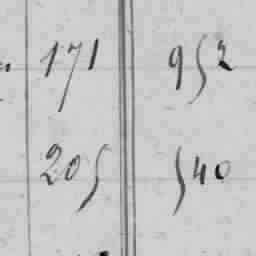 171 952
205 540